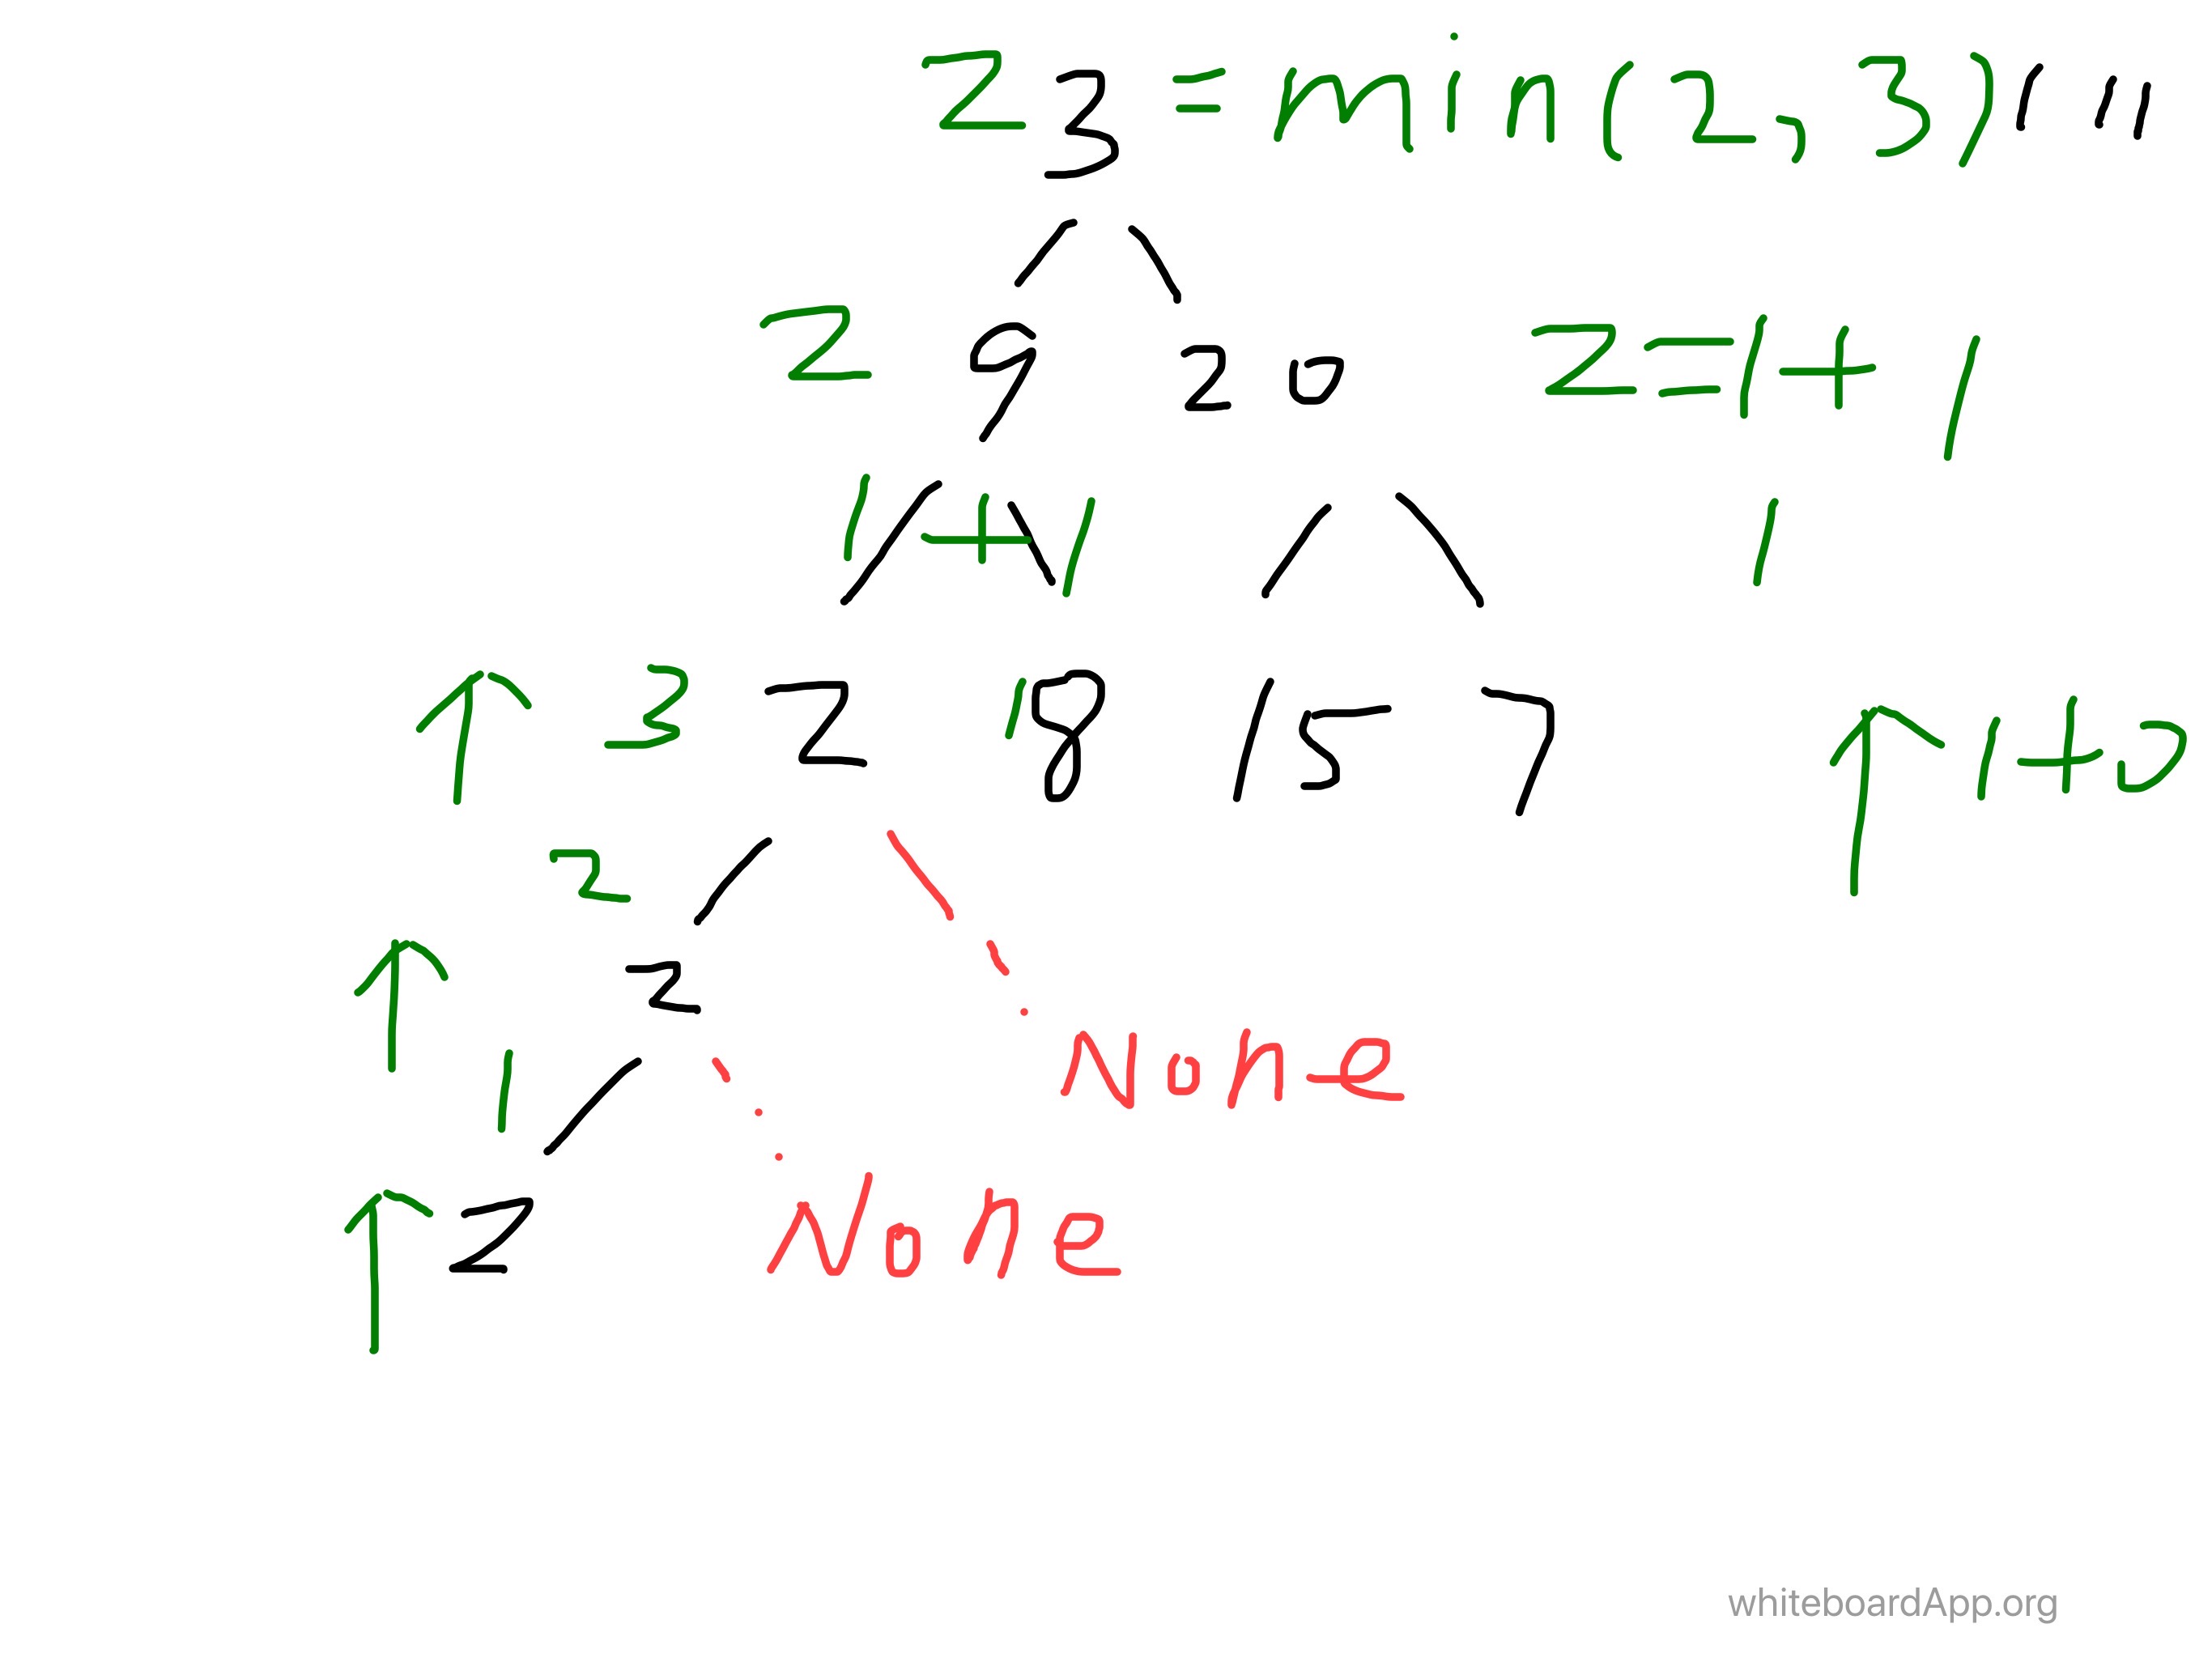 2 3 = min(2, 3)
2 9 20 2 = 1 + 1
1 + 1 1
3 2 1 8 15 7 1+0
2
2
None
1
2 None
whiteboardApp.org